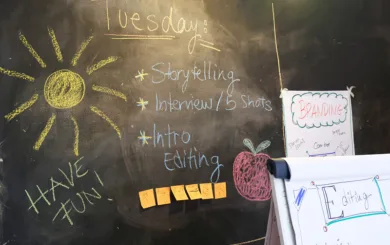 Tuesday:
* Storytelling
* Interview/5 Shots
* Intro
Editing
HAVE
FUN!
BRANDING
Editing